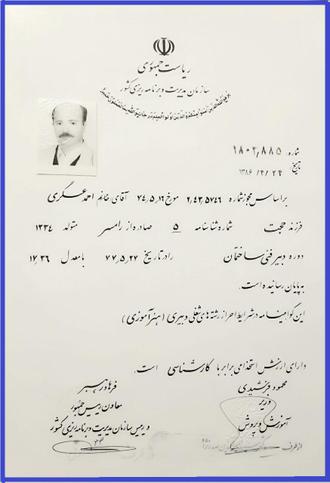 ریاست جمهوری
سازمان مدیریت و برنامه ریزی کشور
شماره ۱۸۰۲٫۸۸۵
تاریخ ۱۳۸۶/۲/۲۹
براساس مجوز شماره ۲٫۴۳۵۷۴۶ مورخ ۷۴٫۵٫۱۶ آقای/خانم احمد عسگری
فرزند حجت شماره شناسنامه ۵ صادره از رامسر متولد ۱۳۳۴
دوره دبیر فنی ساختمان را در تاریخ ۷۷٫۵٫۲۷ با معدل ۱۷٫۳۶
به پایان رسانیده است.
این گواهینامه در شرایط احراز رشته های شغلی دبیری (هنرآموزی)
دارای ارزش استخدامی برابر با کارشناسی است.
فرهاد رهبر
معاون رییس جمهور
و رییس سازمان مدیریت و برنامه ریزی کشور
محمود فرشیدی
وزیر
آموزش و پرورش
از طرف